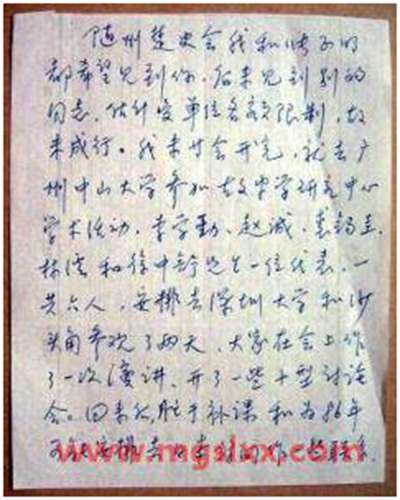 随州楚史会我和帐子的
都希望见到你，后来见到别的
同志，估计受单位名额限制，故
未成行。我未廿会开完，就去广
州中山大学参加古文字学研究中心
学术活动，李学勤、赵诚、裘锡圭、
林沄和徐中舒先生一位代表，一
共六人，安排去深圳大学和沙
头角参观了两天，大家在会上作
了一次演讲，开了一些小型讨论
会。回来后，忙于补课和为86年
www.mgslxx.com